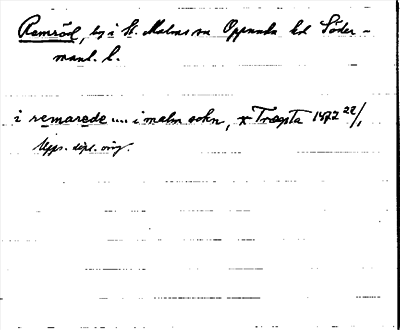 Remröd, by i St. Malms sn Oppunda hd Söder-
manl. l.
i remarøde .... i malm sokn, x Træpsta 1472 22/1
Upps. dipl. orig.